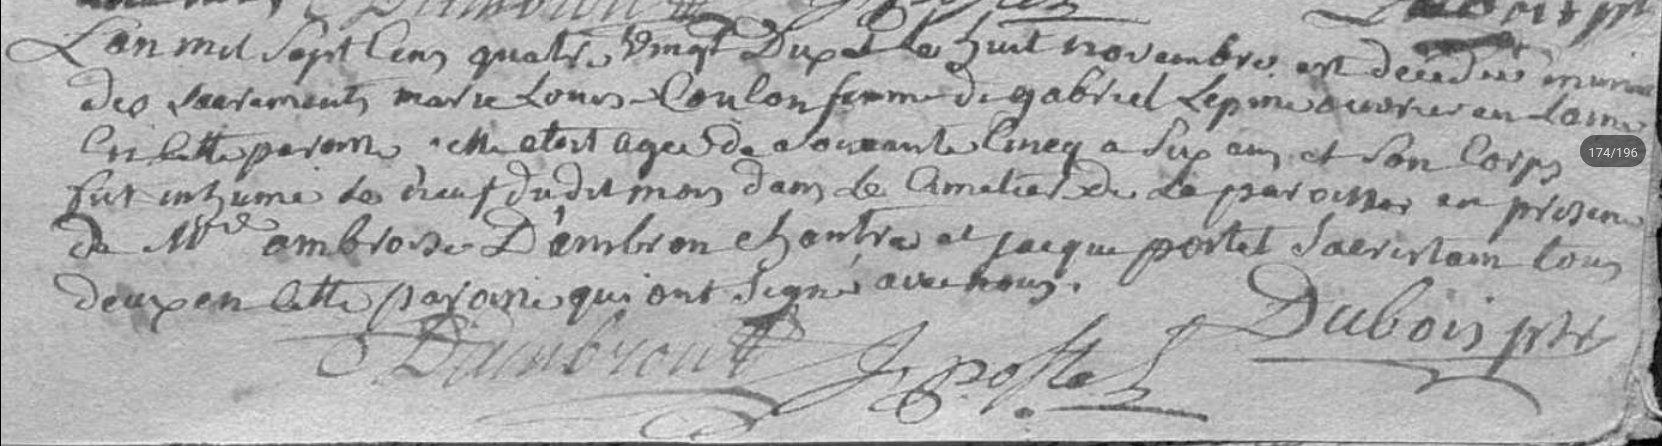 L'an mil Sept Cens quatre Vingt Dix et le huit novembre est decedee munie
des sacrements marie Louis Coulon femme de gabriel Lepine ouvrier en laine
En Cette paroisse elle etoit agee de soixante Cincq a Six ans et son Corps
fut inhume le neuf du dit mois dans le Cimetier de la paroisse en presence
de ambroise D'ambron chantre et jacque postel Sacristain tous
deux en Cette paroisse qui ont Signé avec nous.
Dubois ptre
Dambront
J postel
174/196